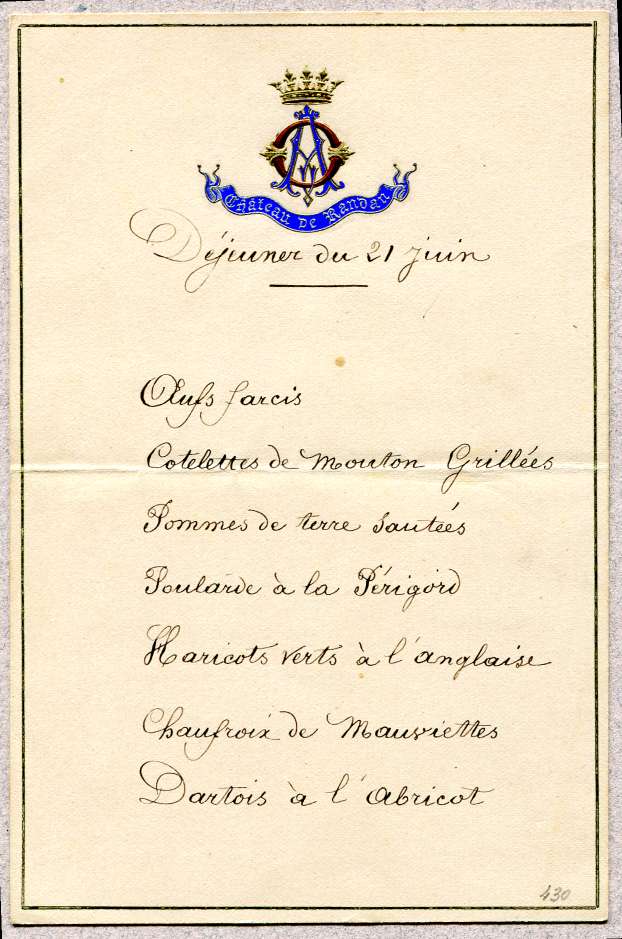 Château de Randan
Déjeuner du 21 juin
Œufs farcis
Cotelettes de Mouton Grillées
Pommes de terre Sautées
Poularde à la Périgord
Haricots verts à l'anglaise
Chaufroix de Mauviettes
Dartois à l'Abricot
430